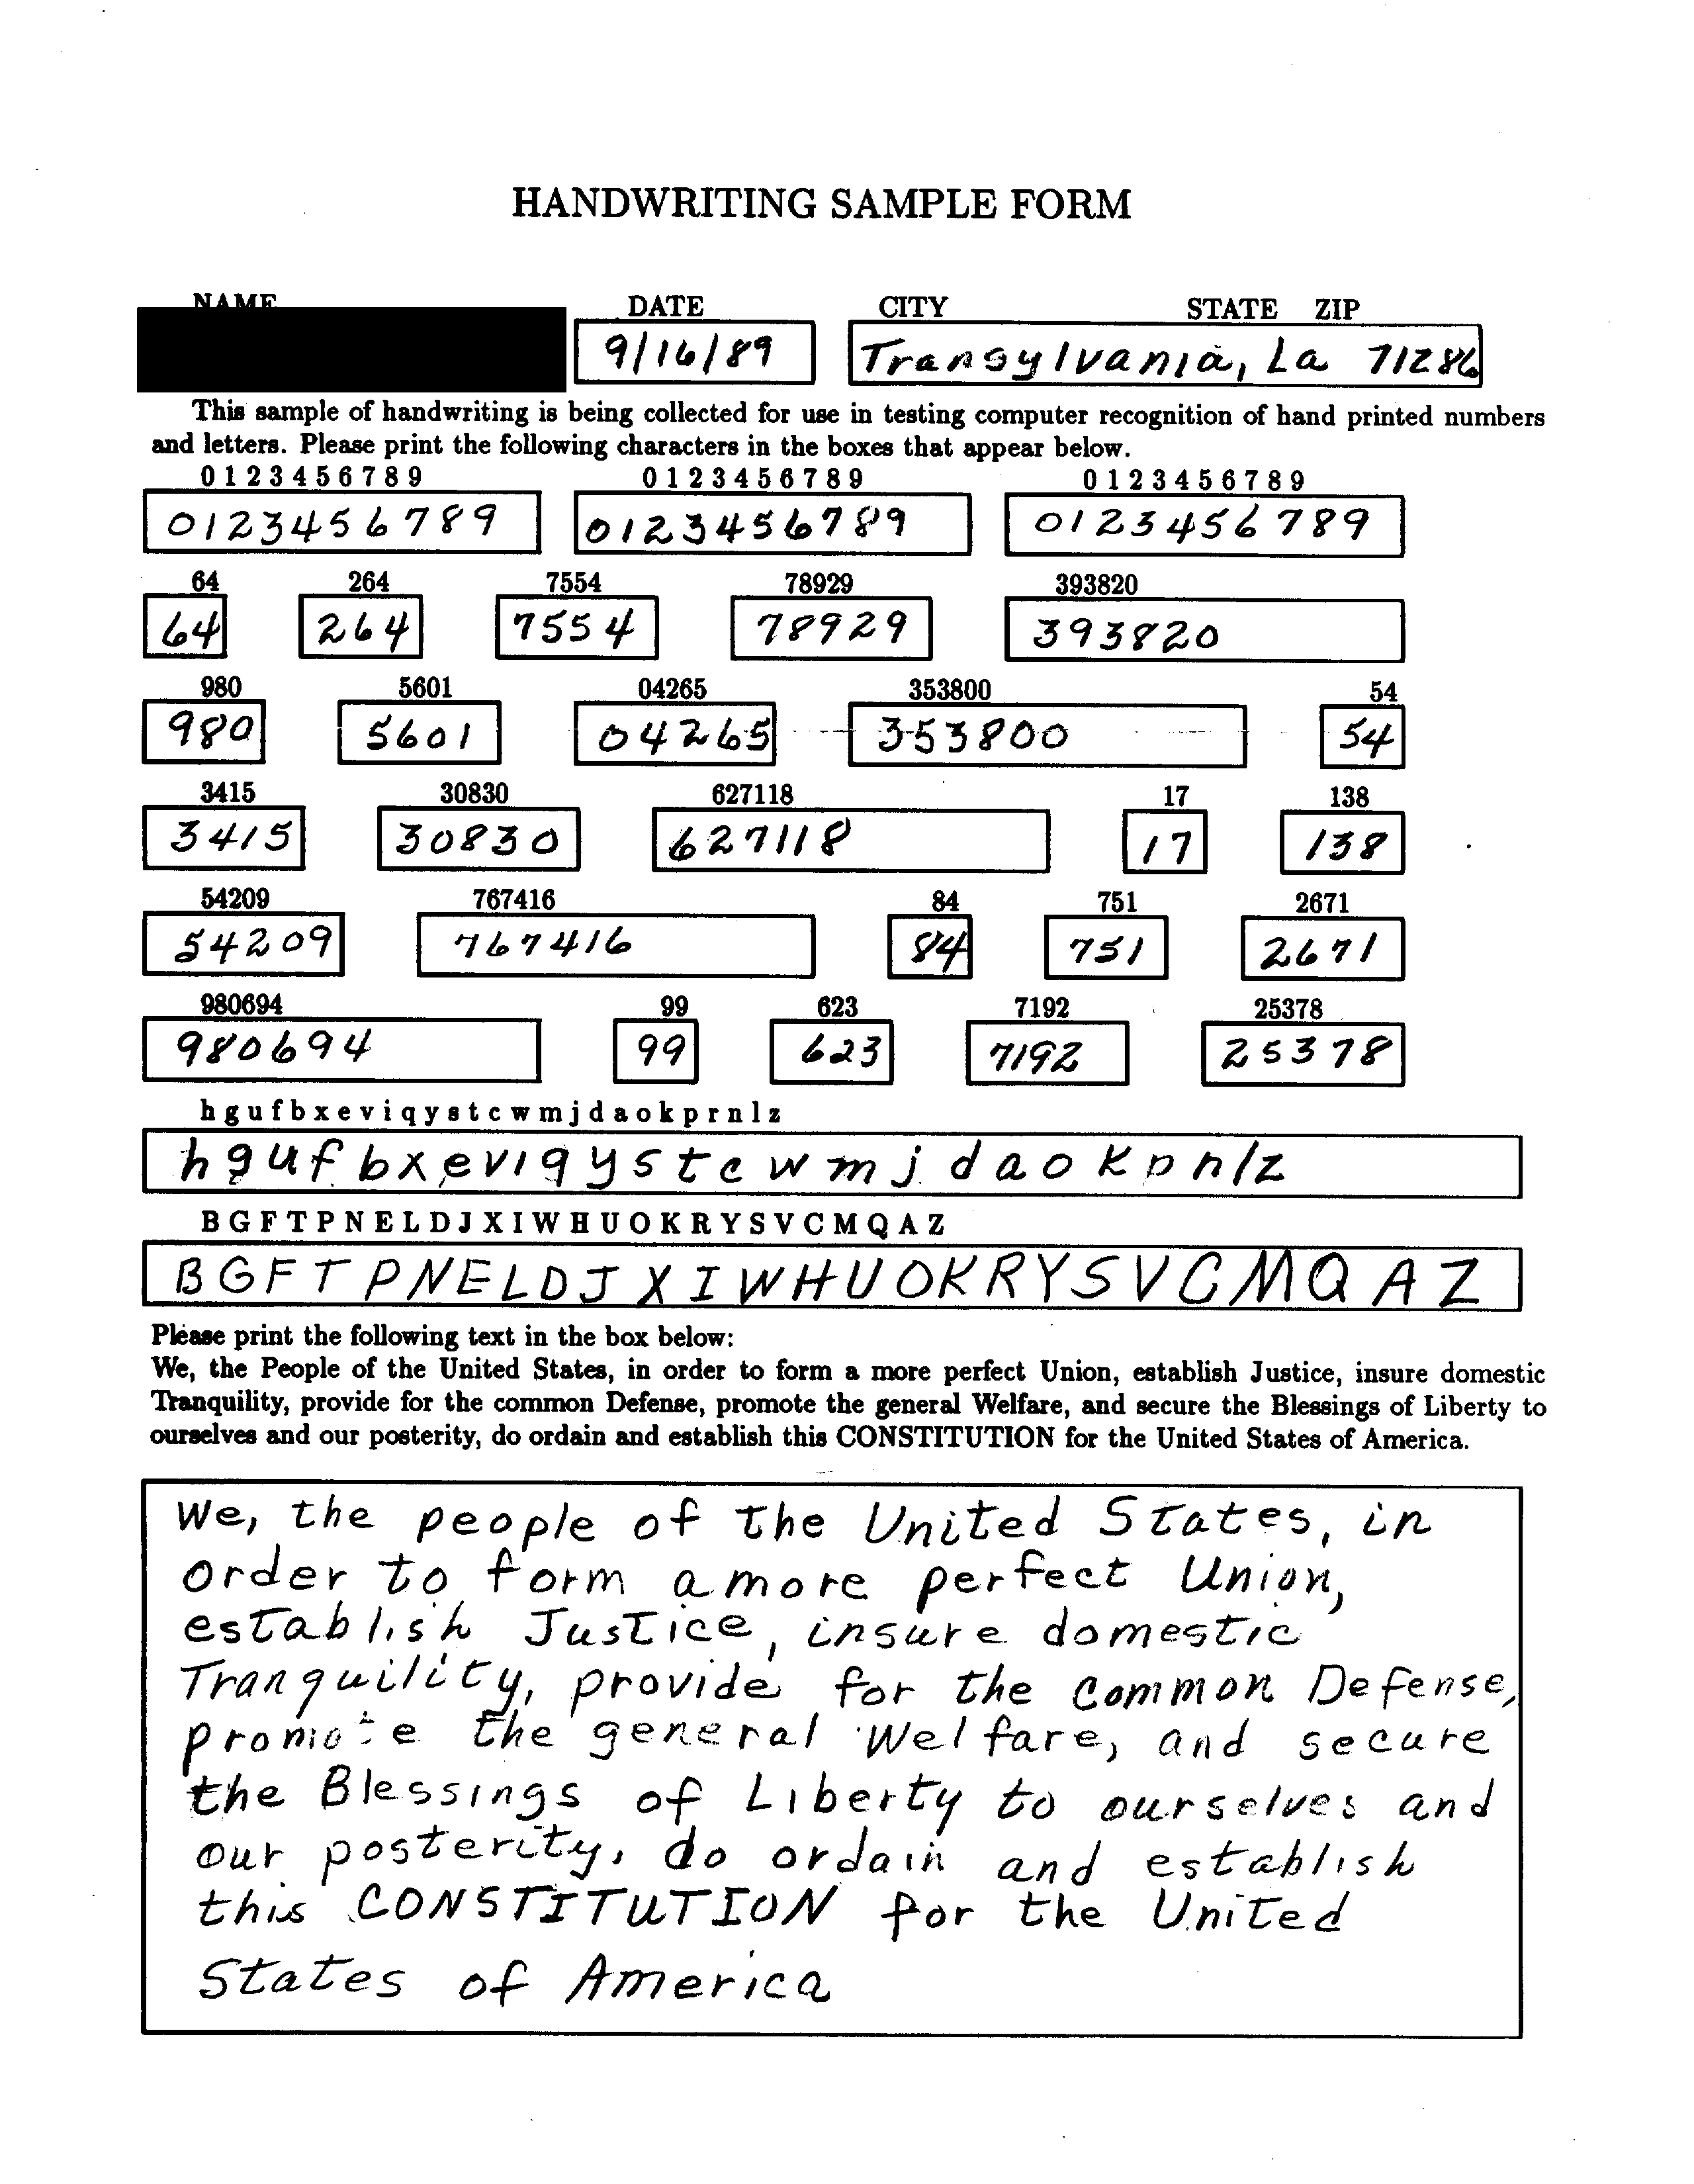 HANDWRITING SAMPLE FORM
NAME DATE CITY STATE ZIP
9/16/89 Transylvania, La 71286
This sample of handwriting is being collected for use in testing computer recognition of hand printed numbers
and letters. Please print the following characters in the boxes that appear below.
0 1 2 3 4 5 6 7 8 9 0 1 2 3 4 5 6 7 8 9 0 1 2 3 4 5 6 7 8 9
0123456789 0123456789 0123456789
64 264 7554 78929 393820
64 264 7554 78929 393820
980 5601 04265 353800 54
980 5601 04265 353800 54
3415 30830 627118 17 138
3415 30830 627118 17 138
54209 767416 84 751 2671
54209 767416 84 751 2671
980694 99 623 7192 25378
980694 99 623 7192 25378
h g u f b x e v i q y s t c w m j d a o k p r n l z
h g u f b x e v i q y s t c w m j d a o k p n l z
B G F T P N E L D J X I W H U O K R Y S V C M Q A Z
B G F T P N E L D J X I W H U O K R Y S V C M Q A Z
Please print the following text in the box below:
We, the People of the United States, in order to form a more perfect Union, establish Justice, insure domestic
Tranquility, provide for the common Defense, promote the general Welfare, and secure the Blessings of Liberty to
ourselves and our posterity, do ordain and establish this CONSTITUTION for the United States of America.
We, the people of the United States, in
order to form a more perfect Union,
establish Justice, insure domestic
Tranquility, provide for the common Defense,
promote the general Welfare, and secure
the Blessings of Liberty to ourselves and
our posterity, do ordain and establish
this CONSTITUTION for the United
States of America